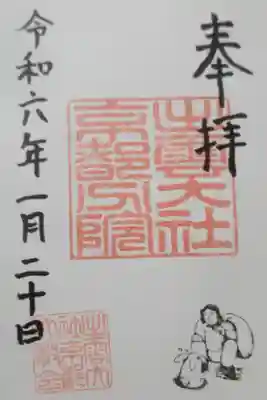 奉拝
出雲大社
京都分院
令和六年一月二十日